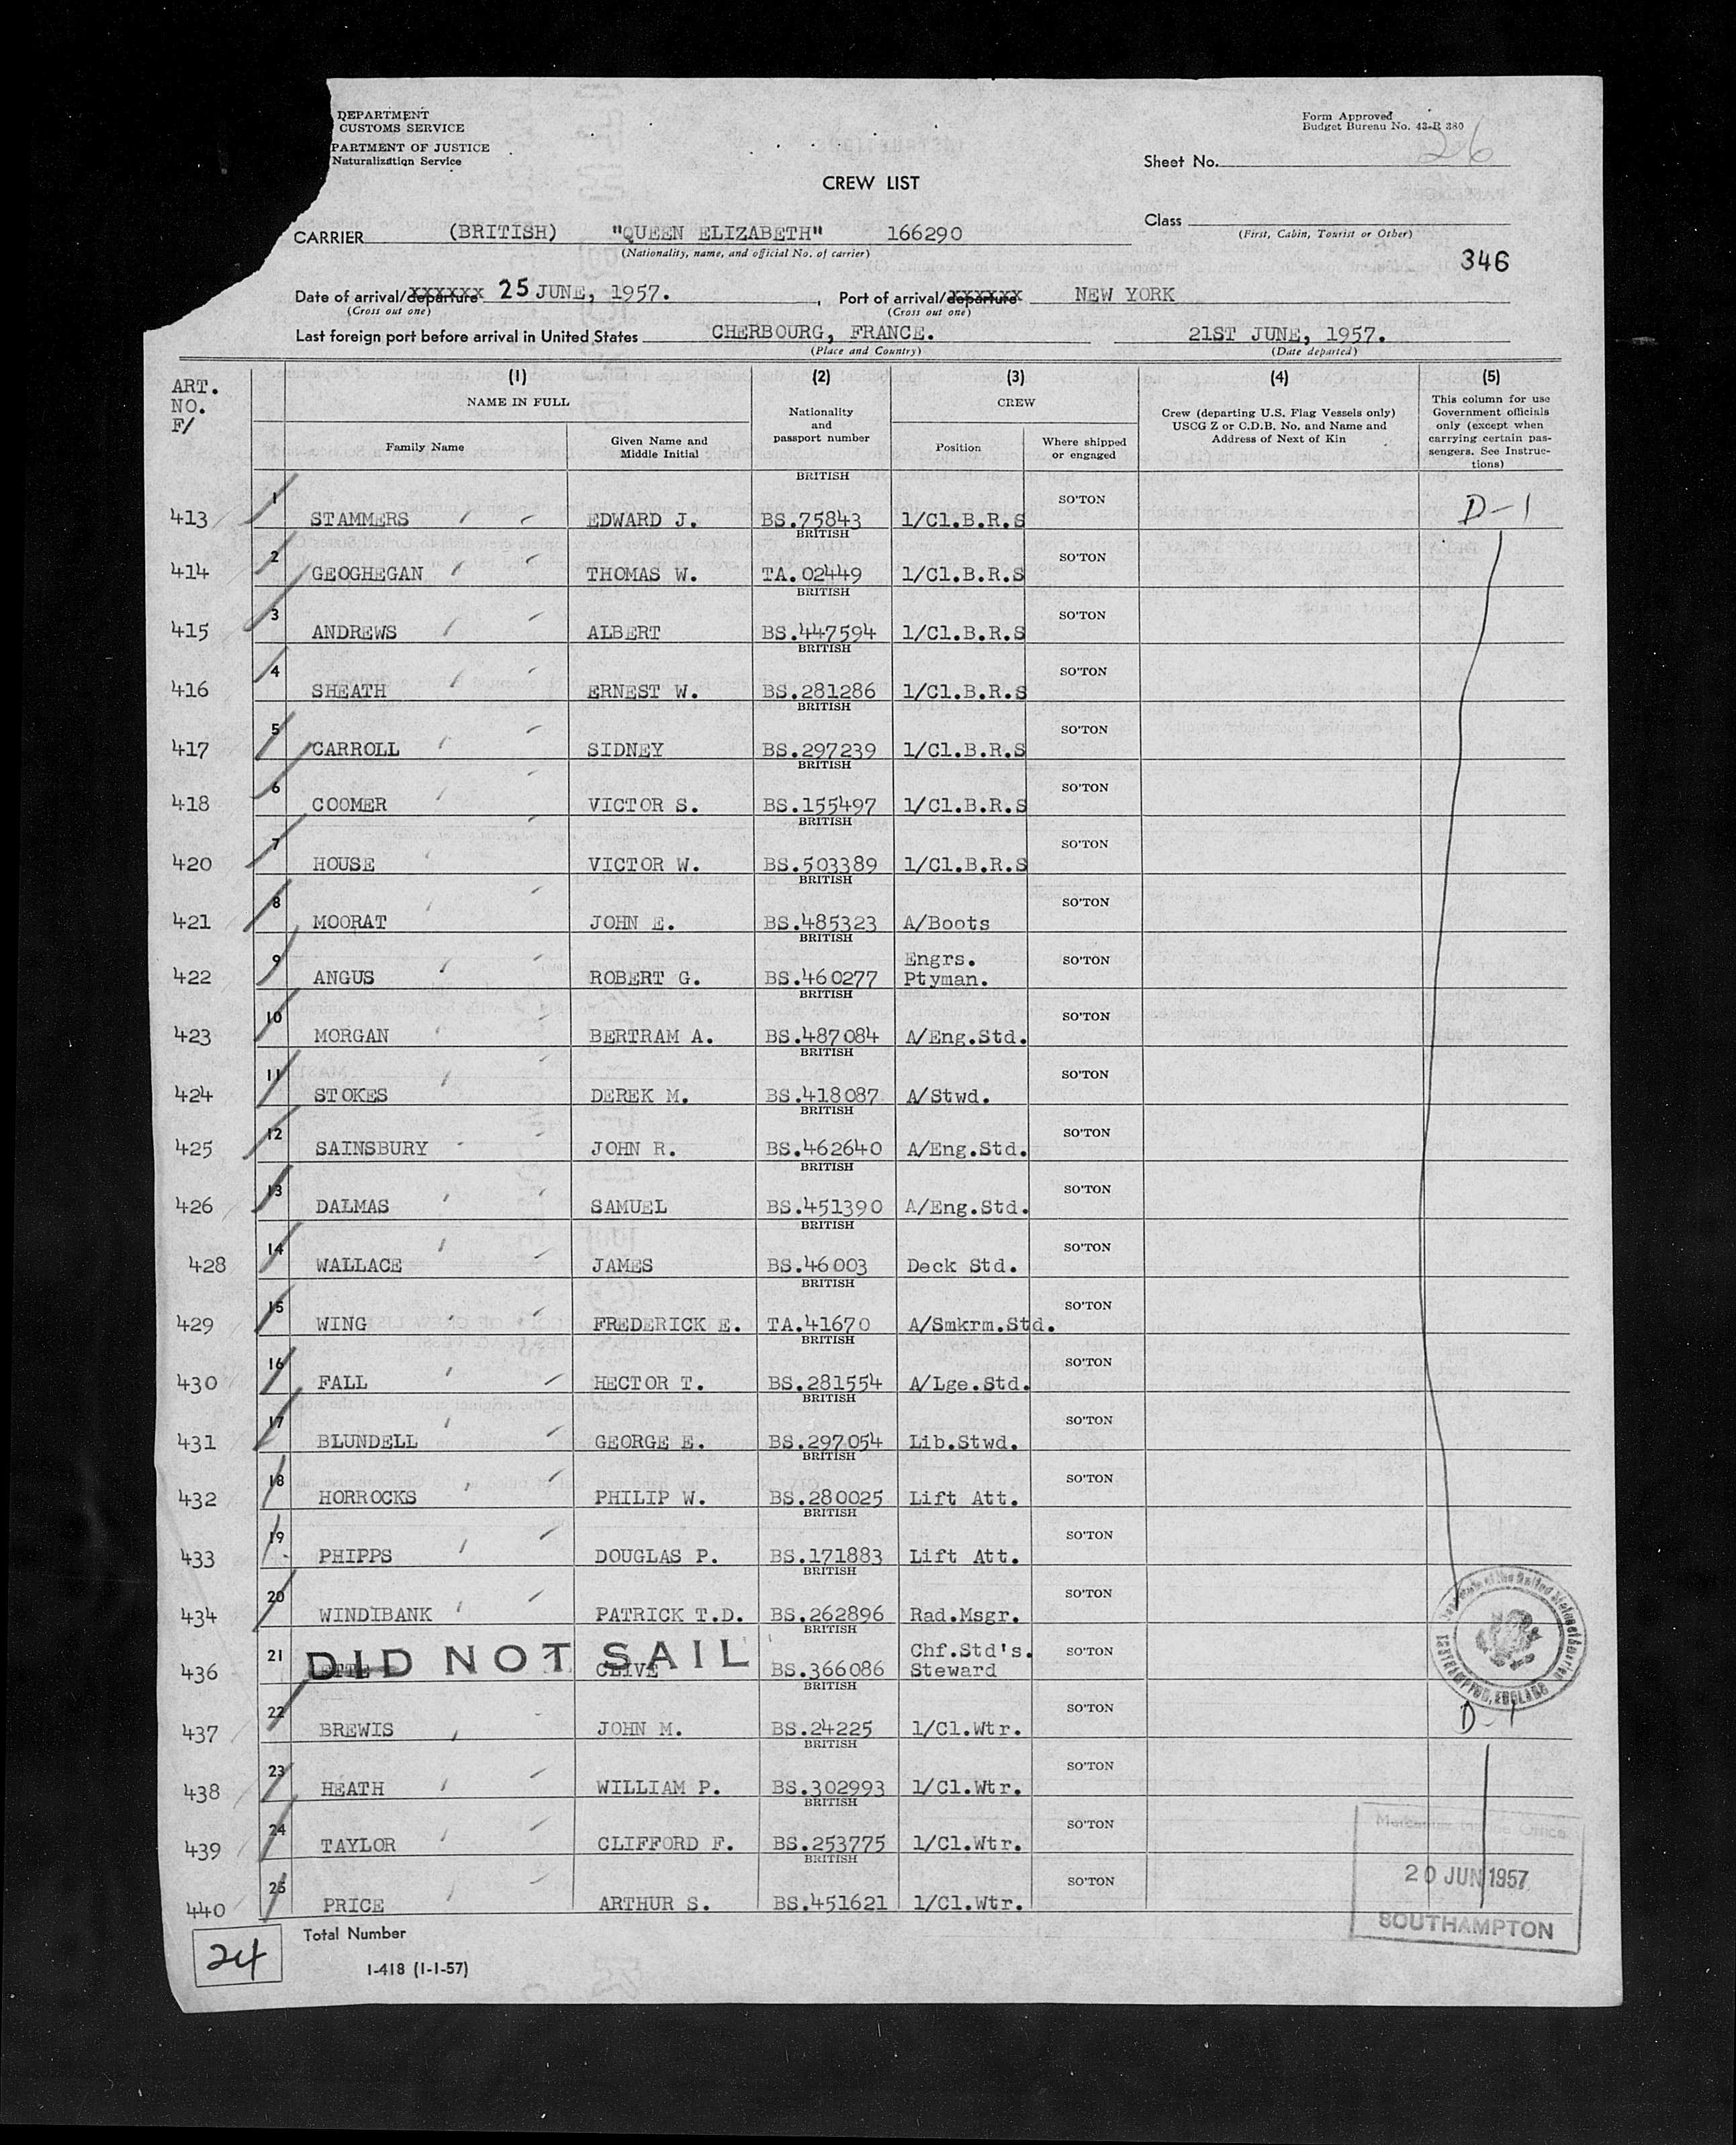 DEPARTMENT
CUSTOMS SERVICE
PARTMENT OF JUSTICE
Naturalization Service
Form Approved
Budget Bureau No. 43-R 380
Sheet No. 26
CREW LIST
Class
(First, Cabin, Tourist or Other)
CARRIER (BRITISH) "QUEEN ELIZABETH" 166290
(Nationality, name, and official No. of carrier)
346
Date of arrival/departure 25 JUNE, 1957. , Port of arrival/departure NEW YORK
(Cross out one) (Cross out one)
Last foreign port before arrival in United States CHERBOURG, FRANCE. 21ST JUNE, 1957.
(Place and Country) (Date departed)
ART. NO. F/
(1) (2) (3) (4) (5)
NAME IN FULL
Family Name
Given Name and Middle Initial
Nationality and passport number
CREW
Position
Where shipped or engaged
Crew (departing U.S. Flag Vessels only) USCG Z or C.D.B. No. and Name and Address of Next of Kin
This column for use Government officials only (except when carrying certain passengers. See Instructions)
413 1 STAMMERS EDWARD J. BRITISH BS.75843 1/Cl.B.R.S SO'TON D-1
414 2 GEOGHEGAN THOMAS W. BRITISH TA.02449 1/Cl.B.R.S SO'TON
415 3 ANDREWS ALBERT BRITISH BS.447594 1/Cl.B.R.S SO'TON
416 4 SHEATH ERNEST W. BRITISH BS.281286 1/Cl.B.R.S SO'TON
417 5 CARROLL SIDNEY BRITISH BS.297239 1/Cl.B.R.S SO'TON
418 6 COOMER VICTOR S. BRITISH BS.155497 1/Cl.B.R.S SO'TON
420 7 HOUSE VICTOR W. BRITISH BS.503389 1/Cl.B.R.S SO'TON
421 8 MOORAT JOHN E. BRITISH BS.485323 A/Boots SO'TON
422 9 ANGUS ROBERT G. BRITISH BS.460277 Engrs. Ptyman. SO'TON
423 10 MORGAN BERTRAM A. BRITISH BS.487084 A/Eng.Std. SO'TON
424 11 STOKES DEREK M. BRITISH BS.418087 A/Stwd. SO'TON
425 12 SAINSBURY JOHN R. BRITISH BS.462640 A/Eng.Std. SO'TON
426 13 DALMAS SAMUEL BRITISH BS.451390 A/Eng.Std. SO'TON
428 14 WALLACE JAMES BRITISH BS.46003 Deck Std. SO'TON
429 15 WING FREDERICK E. BRITISH TA.41670 A/Smkrm.Std. SO'TON
430 16 FALL HECTOR T. BRITISH BS.281554 A/Lge.Std. SO'TON
431 17 BLUNDELL GEORGE E. BRITISH BS.297054 Lib.Stwd. SO'TON
432 18 HORROCKS PHILIP W. BRITISH BS.280025 Lift Att. SO'TON
433 19 PHIPPS DOUGLAS P. BRITISH BS.171883 Lift Att. SO'TON
434 20 WINDIBANK PATRICK T.D. BRITISH BS.262896 Rad.Msgr. SO'TON
436 21 DID NOT SAIL CLIVE BRITISH BS.366086 Chf.Std's. Steward SO'TON
437 22 BREWIS JOHN M. BRITISH BS.24225 1/Cl.Wtr. SO'TON D-1
438 23 HEATH WILLIAM P. BRITISH BS.302993 1/Cl.Wtr. SO'TON
439 24 TAYLOR CLIFFORD F. BRITISH BS.253775 1/Cl.Wtr. SO'TON
440 25 PRICE ARTHUR S. BRITISH BS.451621 1/Cl.Wtr. SO'TON
SOUTHAMPTON, ENGLAND
20 JUN 1957
SOUTHAMPTON
24
Total Number
I-418 (1-1-57)